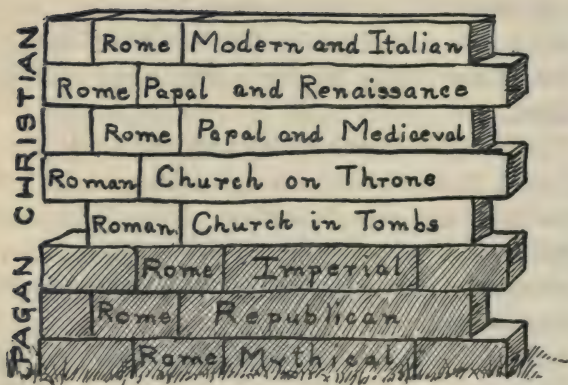 CHRISTIAN
Rome Modern and Italian
Rome Papal and Renaissance
Rome Papal and Mediæval
Roman Church on Throne
Roman Church in Tombs
PAGAN
Rome Imperial
Rome Republican
Rome Mythical